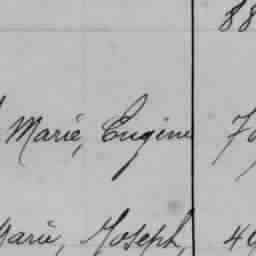 88
Marié, Eugène 70
Marié, Joseph, 49